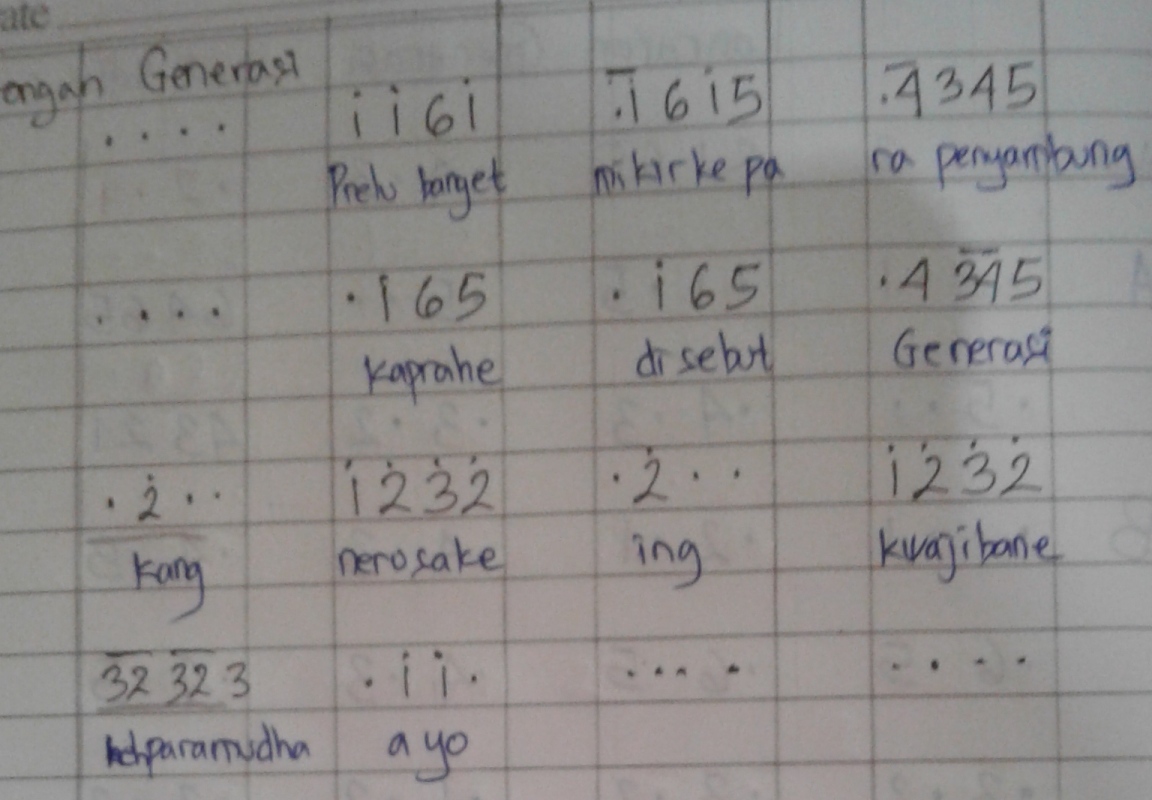 ate
engah Generasi
. . . . i̇ i̇ 6 i̇ .i̇ 6 i̇ 5 .4 3 4 5
Prelu target mikirke pa ra penyambung
. . . . . i̇ 6 5 . i̇ 6 5 . 4 3̅4̅ 5
kaprahe disebut Generasi
. 2̇ . . i̇ 2̇ 3̇ 2̇ . 2̇ . . i̇ 2̇ 3̇ 2̇
kang nerosake ing kwajibane
3̅2̅ 3̅2̅ 3 . i̇ i̇ . . . . . . . . .
paramudha ayo